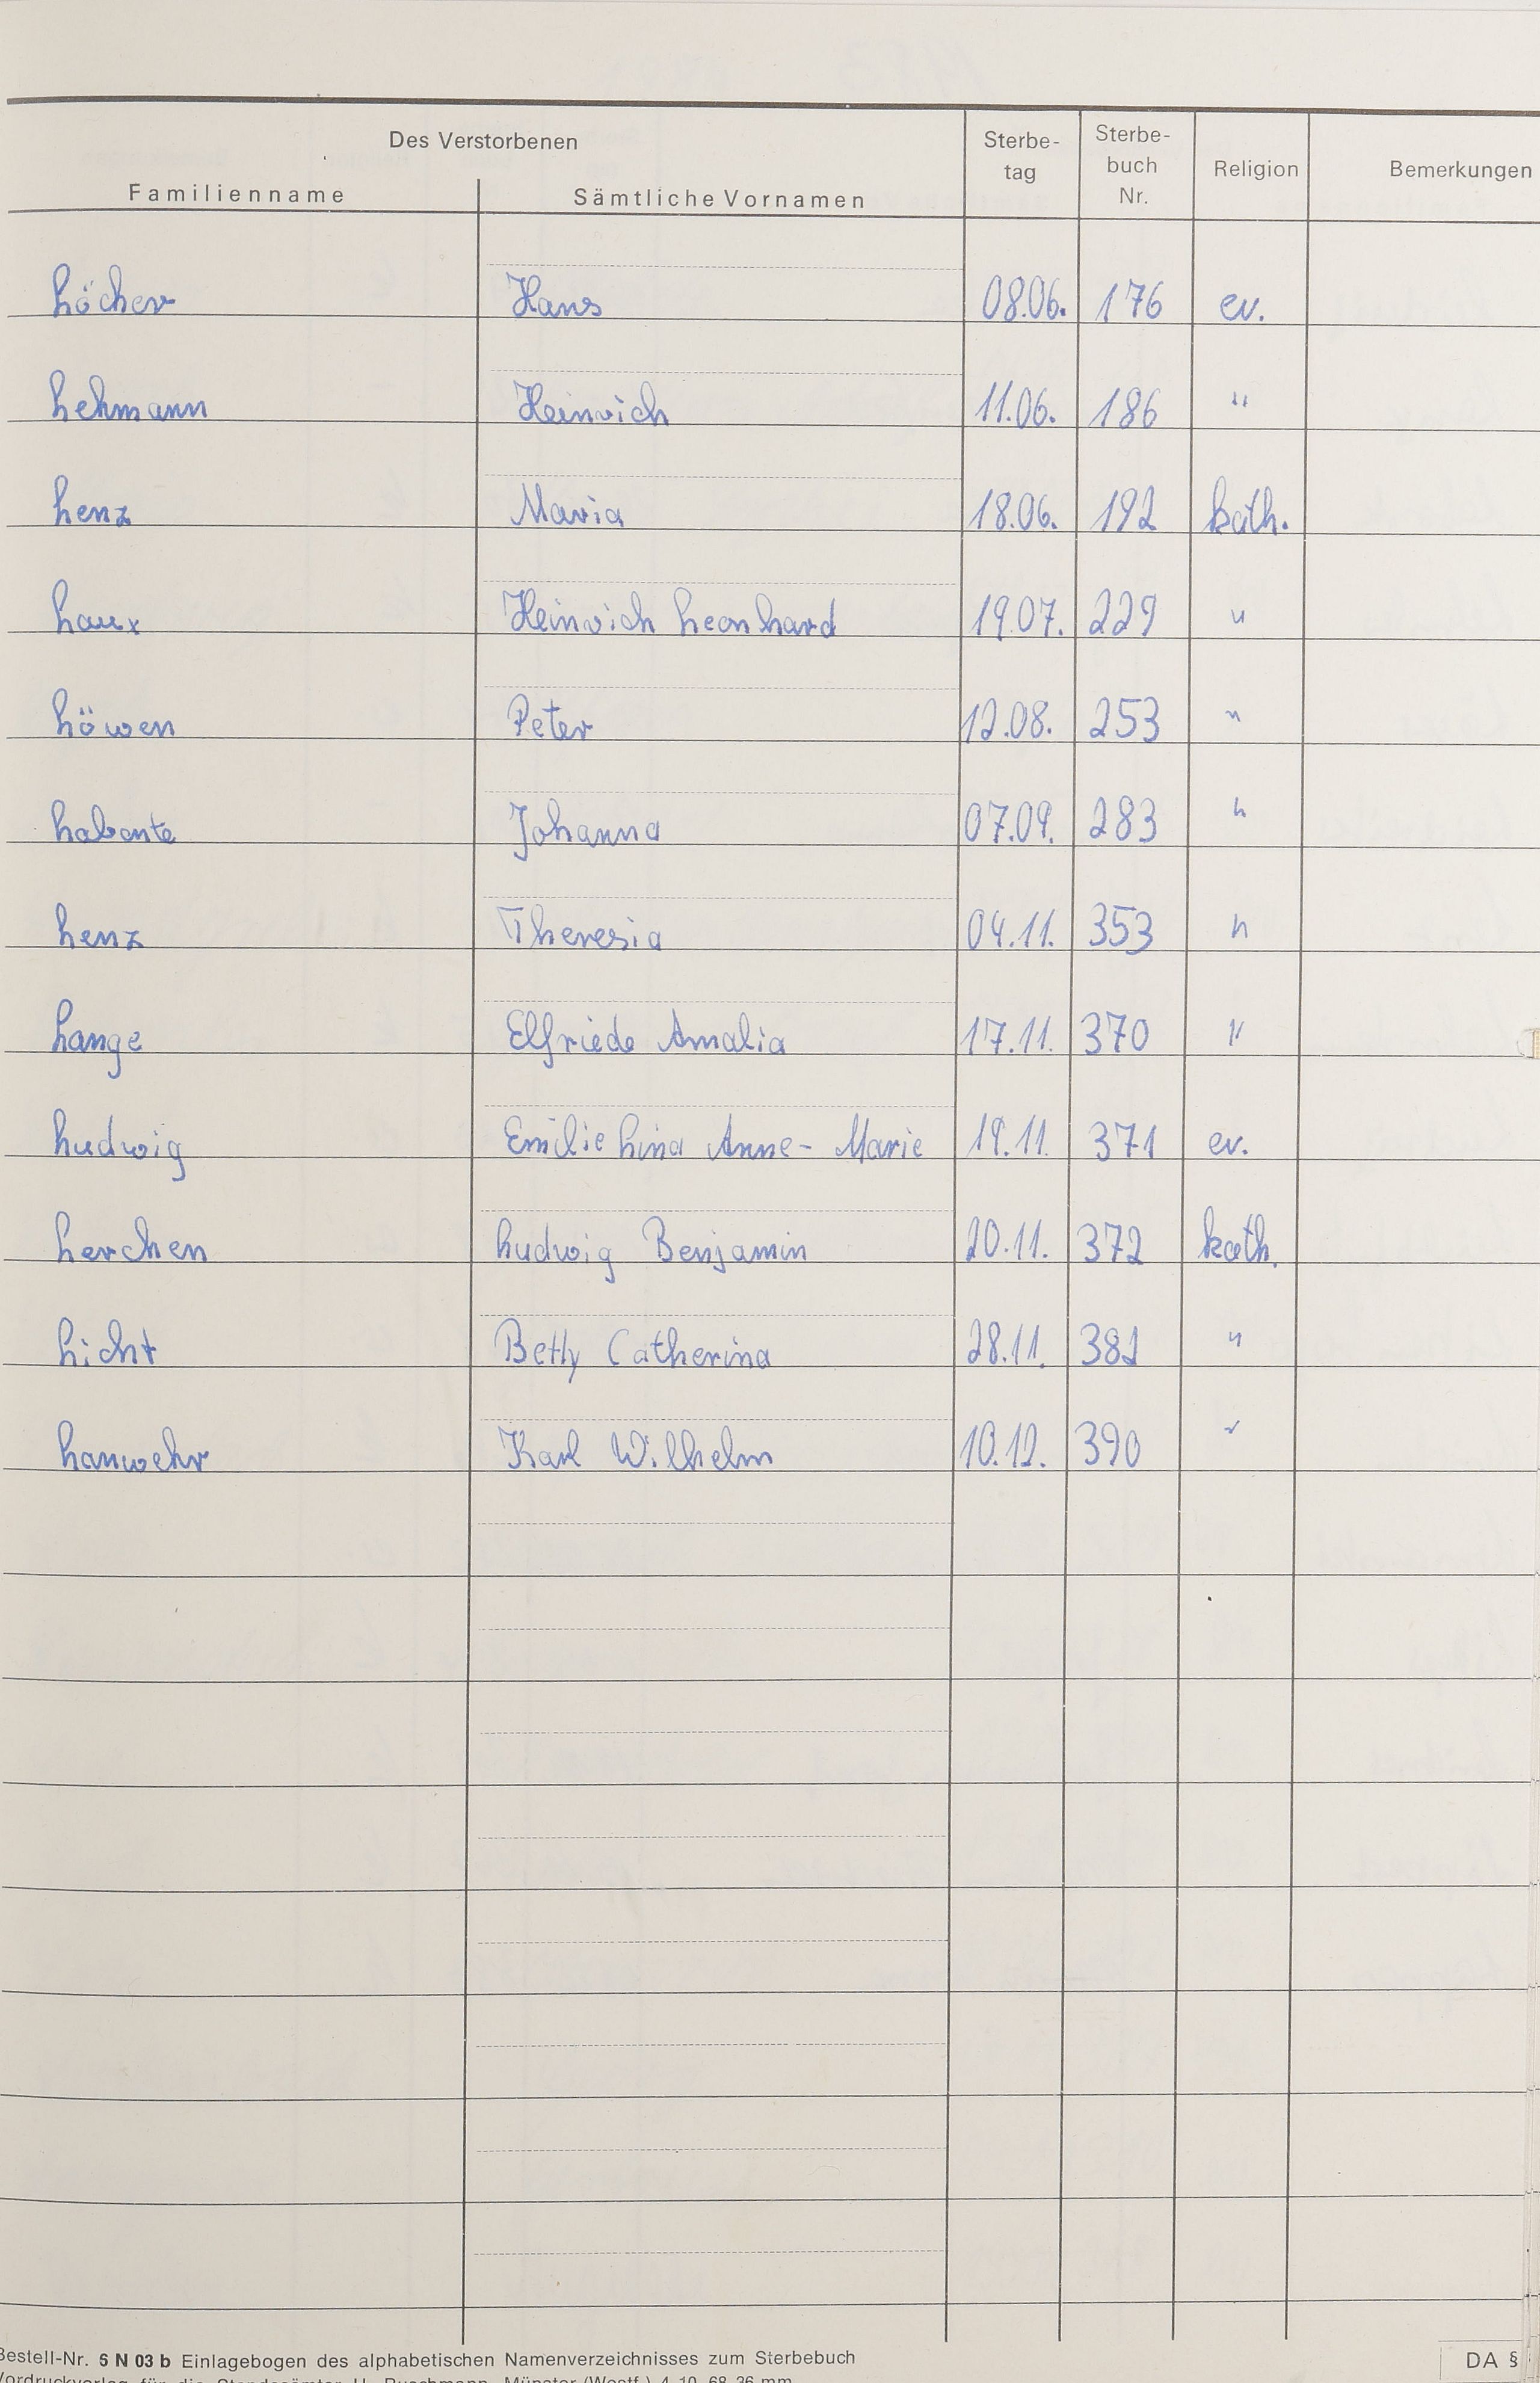 Des Verstorbenen
Familienname Sämtliche Vornamen Sterbe-tag Sterbe-buch Nr. Religion Bemerkungen
Löcher Hans 08.06. 176 ev.
Lehmann Heinrich 11.06. 186 "
Lenz Maria 18.06. 192 kath.
Laux Heinrich Leonhard 19.07. 229 "
Löwen Peter 12.08. 253 "
Labonte Johanna 07.09. 283 "
Lenz Theresia 04.11. 353 "
Lange Elfriede Amalia 17.11. 370 "
Ludwig Emilie Lina Anne-Marie 19.11. 371 ev.
Lerchen Ludwig Benjamin 20.11. 372 kath.
Licht Betty Catherina 28.11. 381 "
Lanwehr Karl Wilhelm 10.12. 390 "
Bestell-Nr. 6 N 03 b Einlagebogen des alphabetischen Namenverzeichnisses zum Sterbebuch
DA §